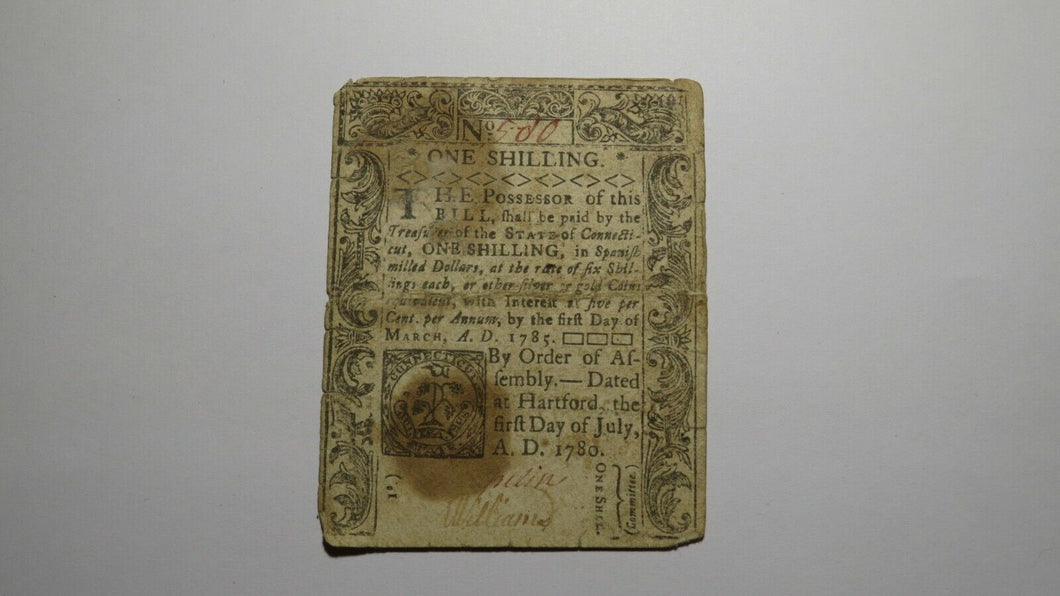 No. 580
* ONE SHILLING. *
THE POSSESSOR of this
BILL, ſhall be paid by the
Treaſurer of the STATE of Connecti-
cut, ONE SHILLING, in Spaniſh
milled Dollars, at the rate of ſix Shil-
lings each, or other ſilver or gold Coins
equivalent, with Intereſt at five per
Cent. per Annum, by the firſt Day of
MARCH, A. D. 1785.
CONNECTICUT
By Order of Aſ-
ſembly.— Dated
at Hartford, the
firſt Day of July,
A. D. 1780.
Williams
ONE SHIL.
(Committee.